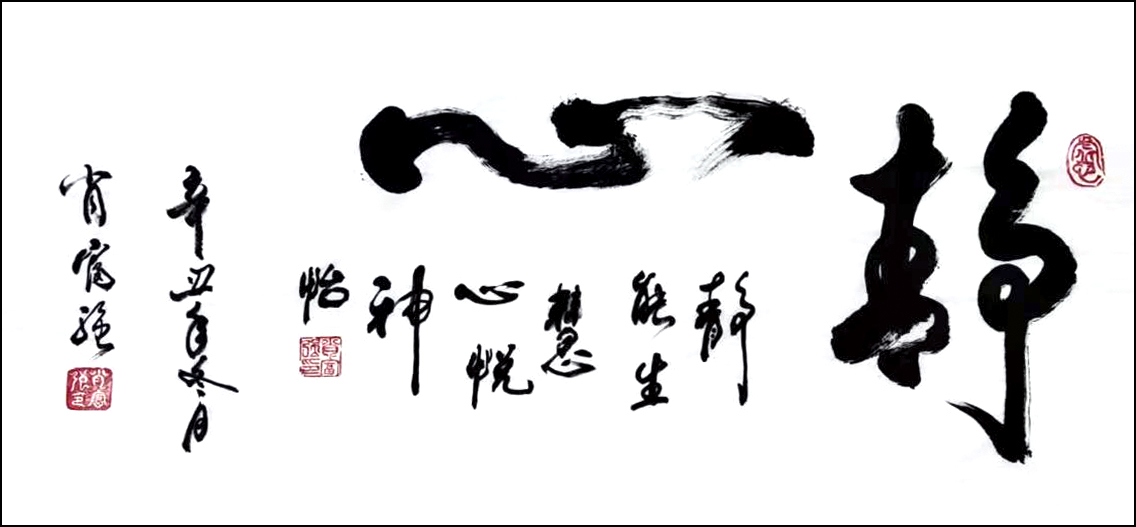 静心
静
能生
慧
心悦
神
怡
辛丑年冬月
肖富强